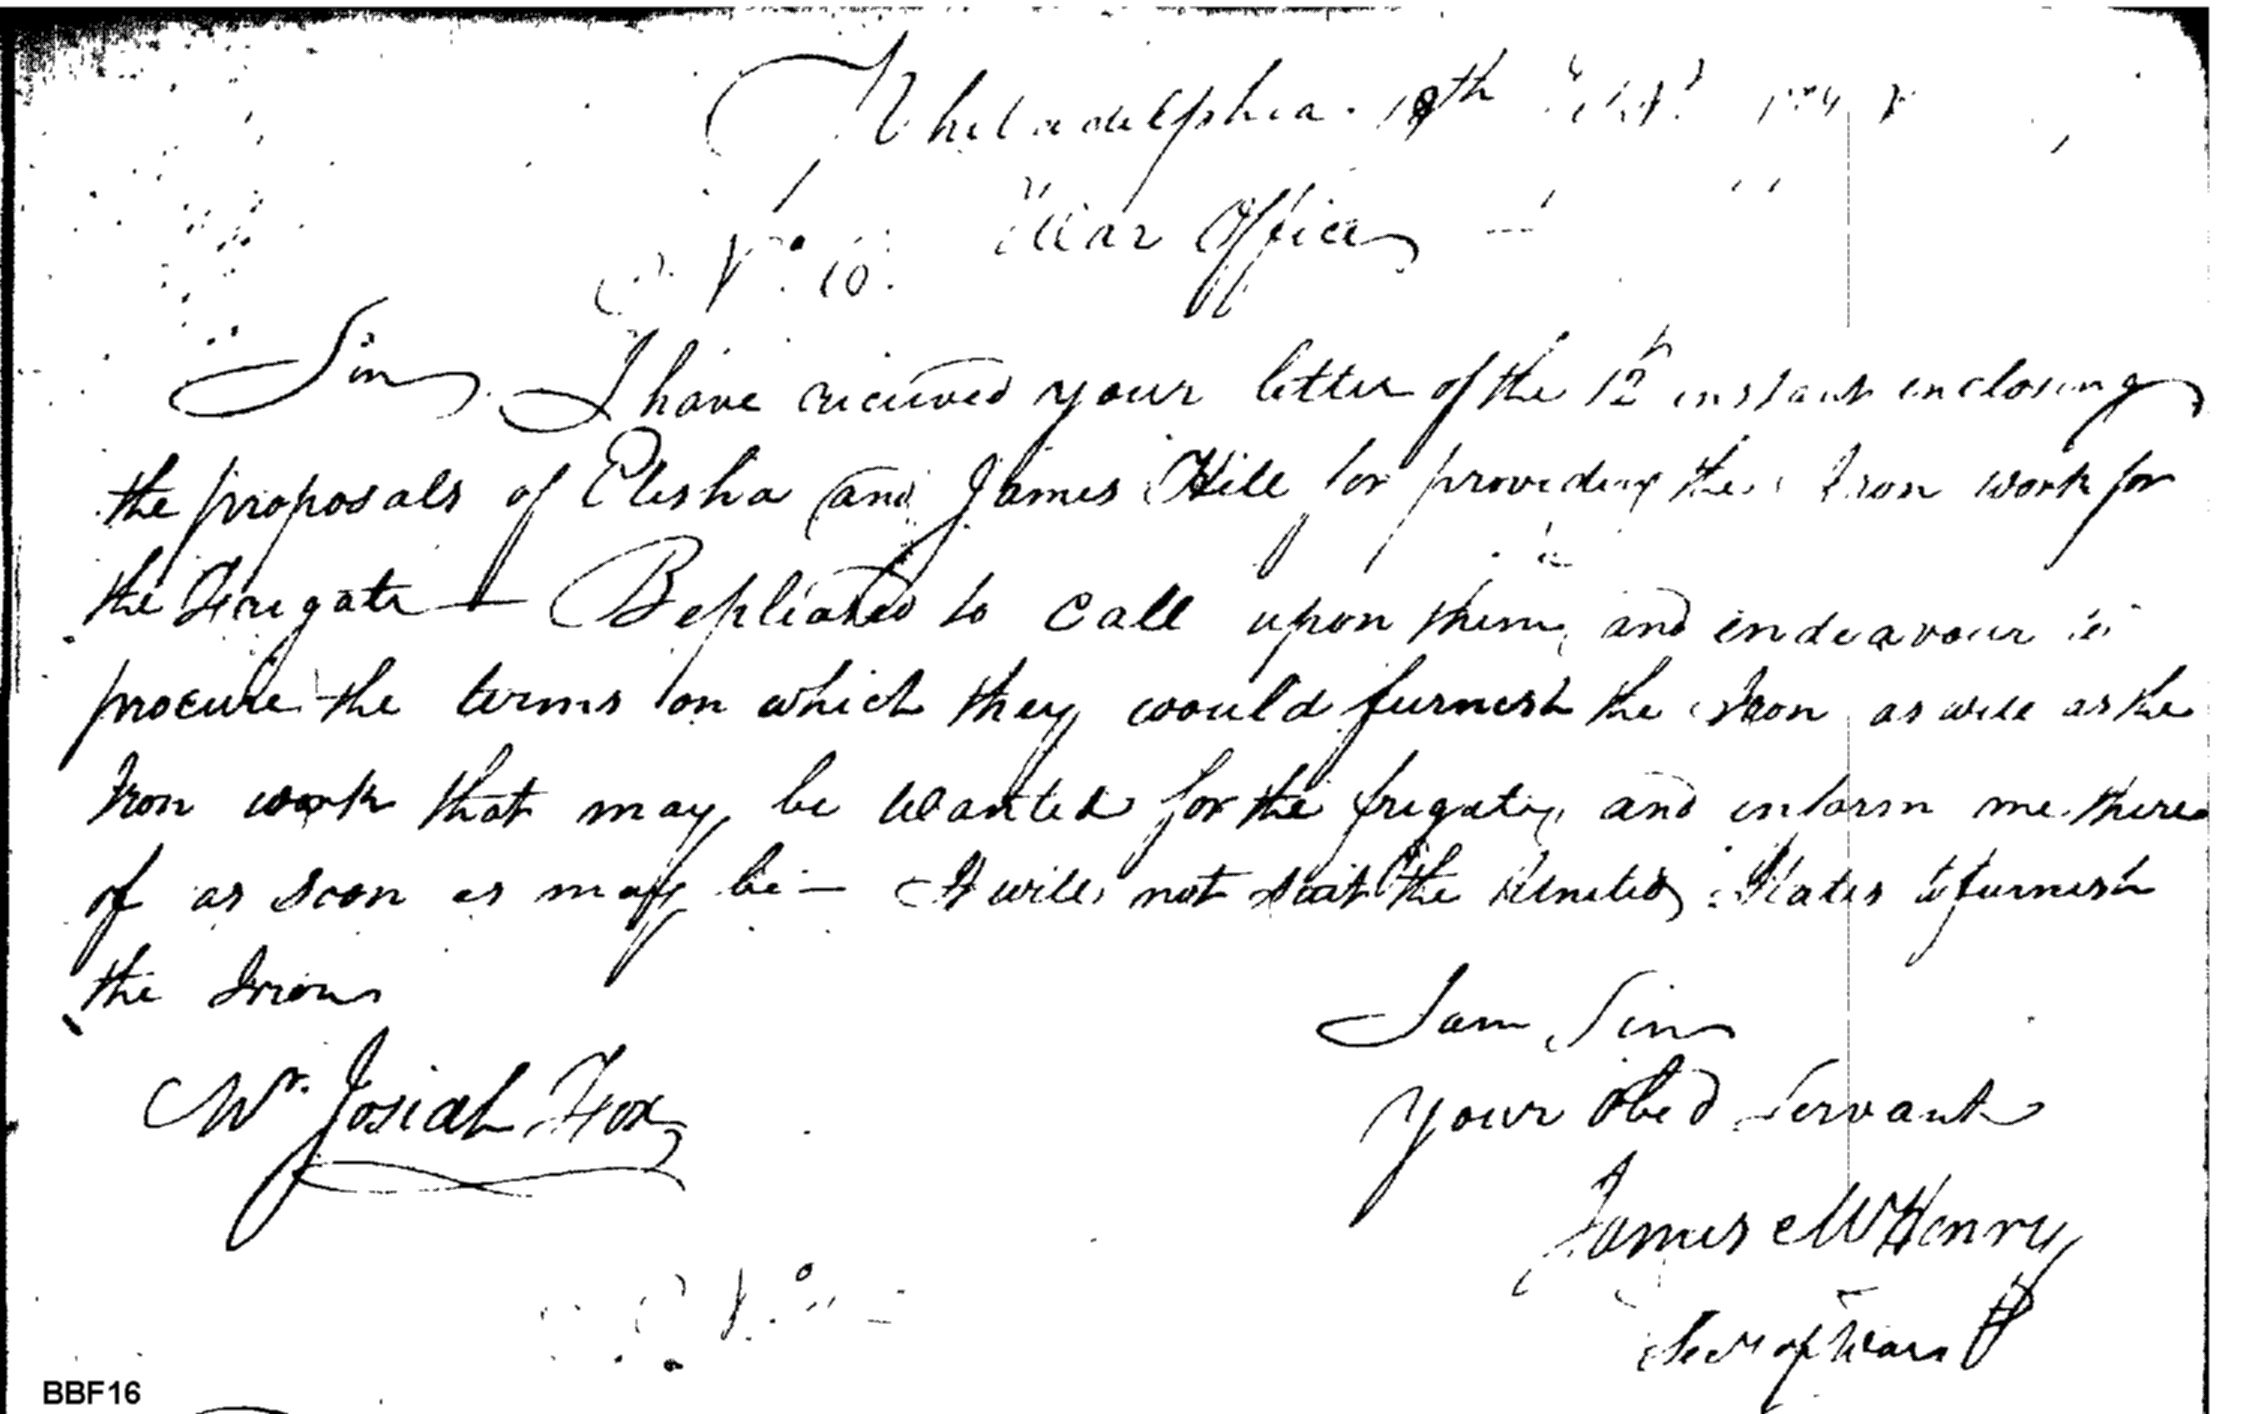 Philadelphia. 18th
War Office
No. 10.
Sir, I have received your letter of the 12th instant enclosing
the proposals of Elisha and James Hill for providing the Iron work for
the Frigate — Be pleased to call upon them, and endeavour to
procure the terms on which they would furnish the Iron as well as the
Iron work that may be wanted for the frigate, and inform me there
of as soon as may be — It will not suit the United States to furnish
the Iron
I am Sir
Mr. Josiah Fox
your Obed Servant
James McHenry
Secr of War
No.
BBF16